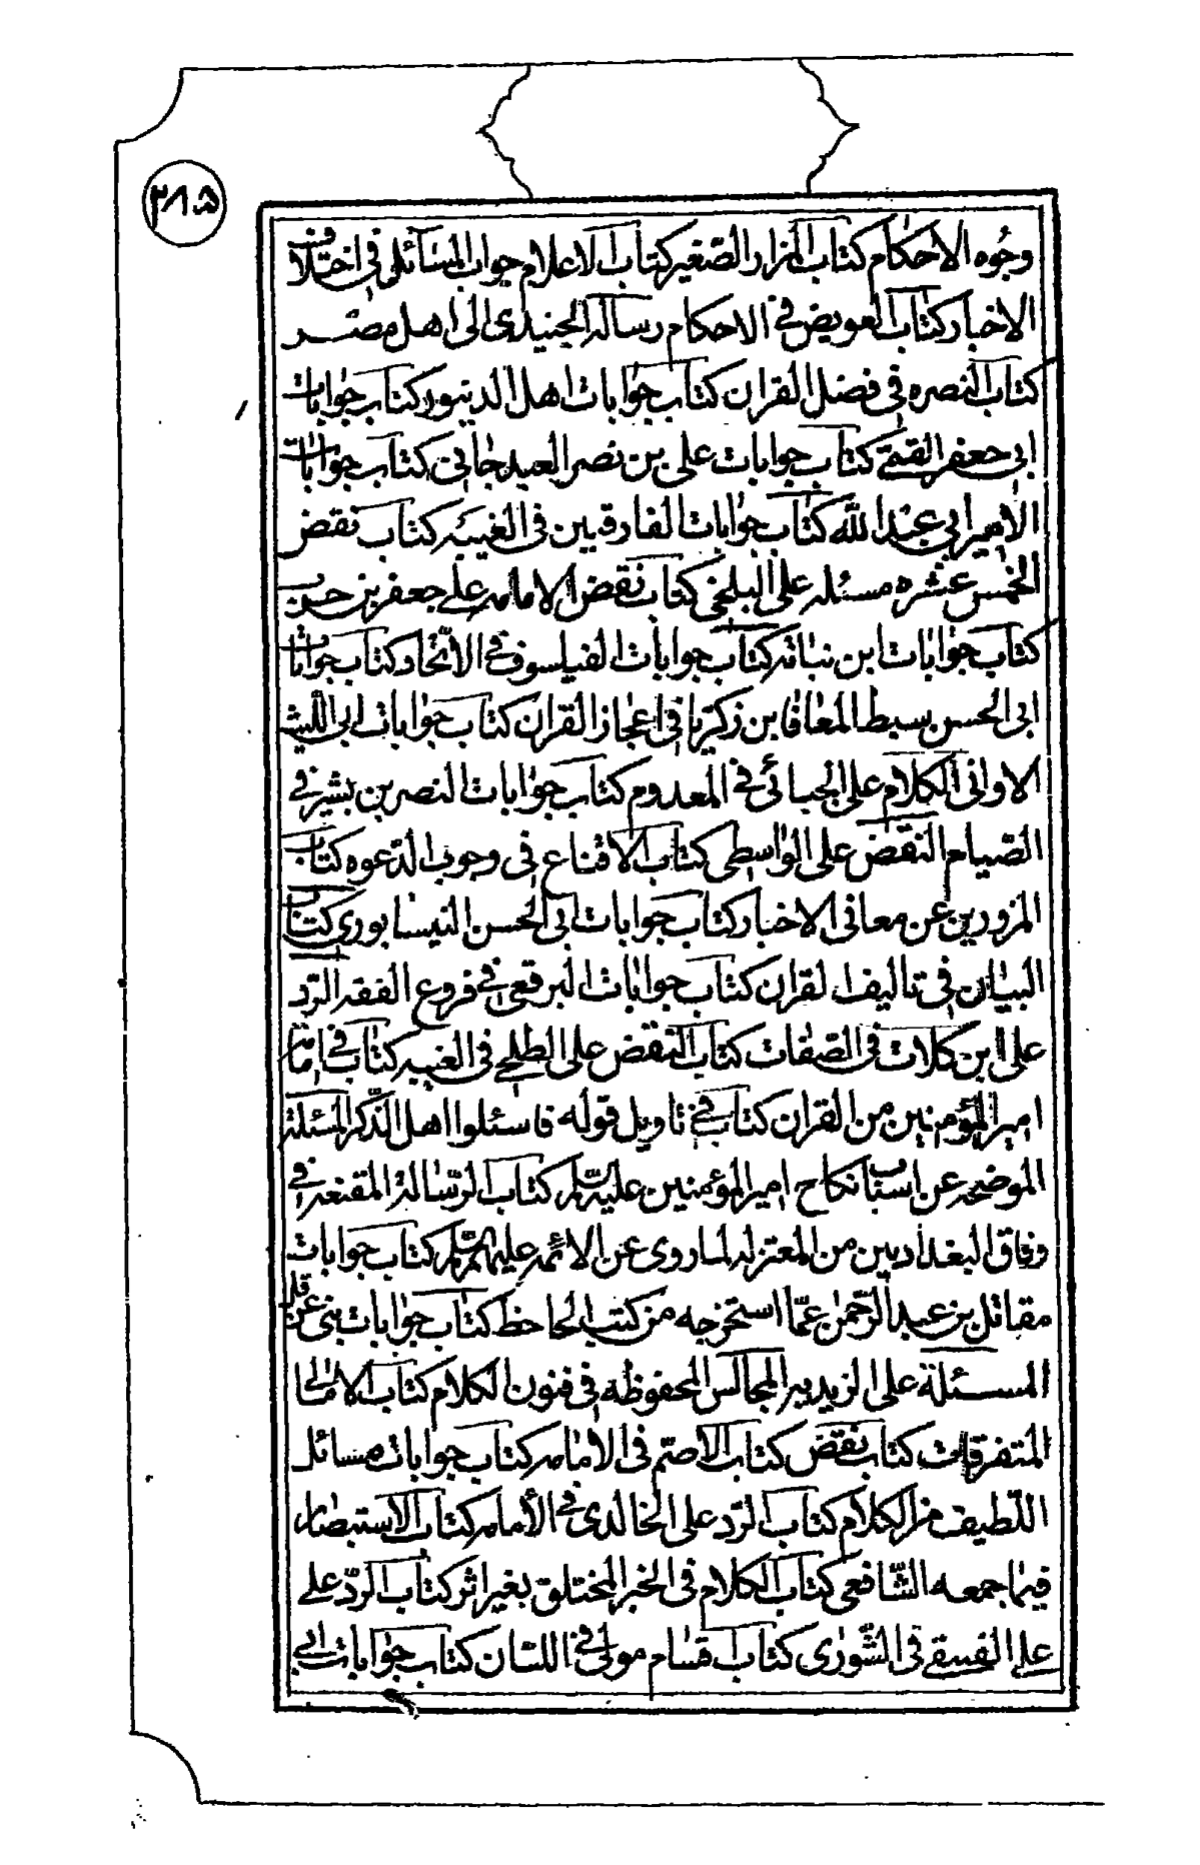 ٢٨٥
وجُوه الاحكام كتاب المزار الصّغير كتاب الاعلام جواب المسَائل فى اختلاف
الاخبار كتاب العويض فى الاحكام رسالة الجنيدى الى اهل مصر
كتاب النصره فى فضل القران كتاب جوٰابات اهل الدينور كتاب جوٰابات
ابى جعفر القمىّ كتاب جوابات على بن نصر العبدجانى كتاب جوٰابات
الامير ابى عبْد اللّه كتاب جوٰابات الفارقيين فى الغيبَه كتاب نقض
الخمس عشره مسئله على البلخى كتاب نقض الامامه على جعفر بن حرب
كتاب جوٰابٰات ابن نباته كتاب جوابات الفيلسوف فى الاتّحاد كتاب جوٰابات
ابى الحسن سبط المعٰافا بن زكريا فى اعجاز القران كتاب جوٰابات ابى الليث
الاوانى الكلام على الجبائى فى المعدوم كتاب جوٰابات النصر بن بشير فى
الصّيام النقض على الوٰاسطى كتاب الاقناع فى وجوب الدّعوه كتاب
المزورين عن معانى الاخبار كتاب جوابات ابى الحسن النيسابورى كتاب
البيٰان فى تاليف القران كتاب جوابات البرقعى فى فروع الفقه الردّ
على ابن كلاب فى الصفٰات كتاب النقض على الطلحى فى الغيبه كتاب فى امٰامة
امير المؤمنين من القران كتاب فى تاويل قوله فاسئلوا اهل الذّكر المسئلة
الموضحه عن اسبٰاب نكاح امير المؤمنين عليه السّلم كتاب الرّسالة المقنعه فى
وفاق البغداديين من المعتزله لما روى عن الائمّه عليهم السّلم كتاب جوابات
مقاتل بن عبد الرّحمٰن عمّا استخرجه من كتب الجاحظ كتاب جوٰابات بنى عرقل
المسئلة على الزيديه المجالس المحفوظه فى فنون الكلام كتاب الامٰالى
المتفرقات كتاب نقض كتاب الاصمّ فى الامٰامه كتاب جوابات مسائل
اللّطيف من الكلام كتاب الردّ على الخالدى فى الامامه كتاب الاستبصار
فيما جمعه الشّافعى كتاب الكلام فى الخبر المختلق بغير اثر كتاب الردّ على
على الفسقى فى الشّورى كتاب اقسام مولى فى اللسٰان كتاب جوٰابات ابى